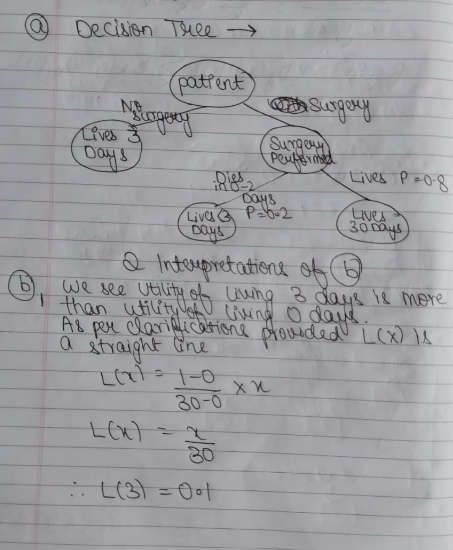 (a) Decision Tree →
patient
No Surgery
Surgery
Lives 3 Days
Surgery Performed
Dies in 0-2 Days P=0.2
Lives P=0.8
Lives Days
Lives 30 Days
2 Interpretations of (b)
(b) 1 We see utility of living 3 days is more
than utility of living 0 days.
As per clarifications provided L(x) is
a straight line
L(x) = 1-0 / 30-0 × x
L(x) = x / 30
∴ L(3) = 0.1